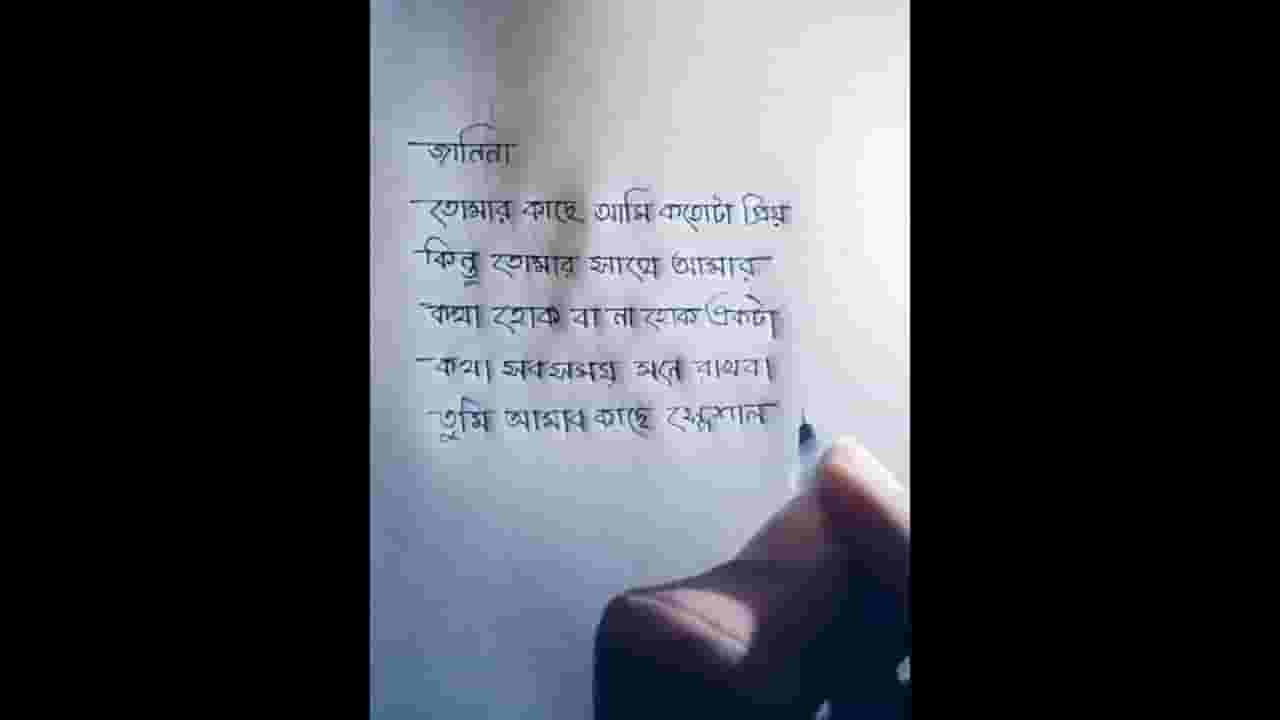 জানিনা
তোমার কাছে আমি কতোটা প্রিয়
কিন্তু তোমার সাথে আমার
কথা হোক বা না হোক একটা
কথা সবসময় মনে রাখবা
তুমি আমার কাছে স্পেশাল